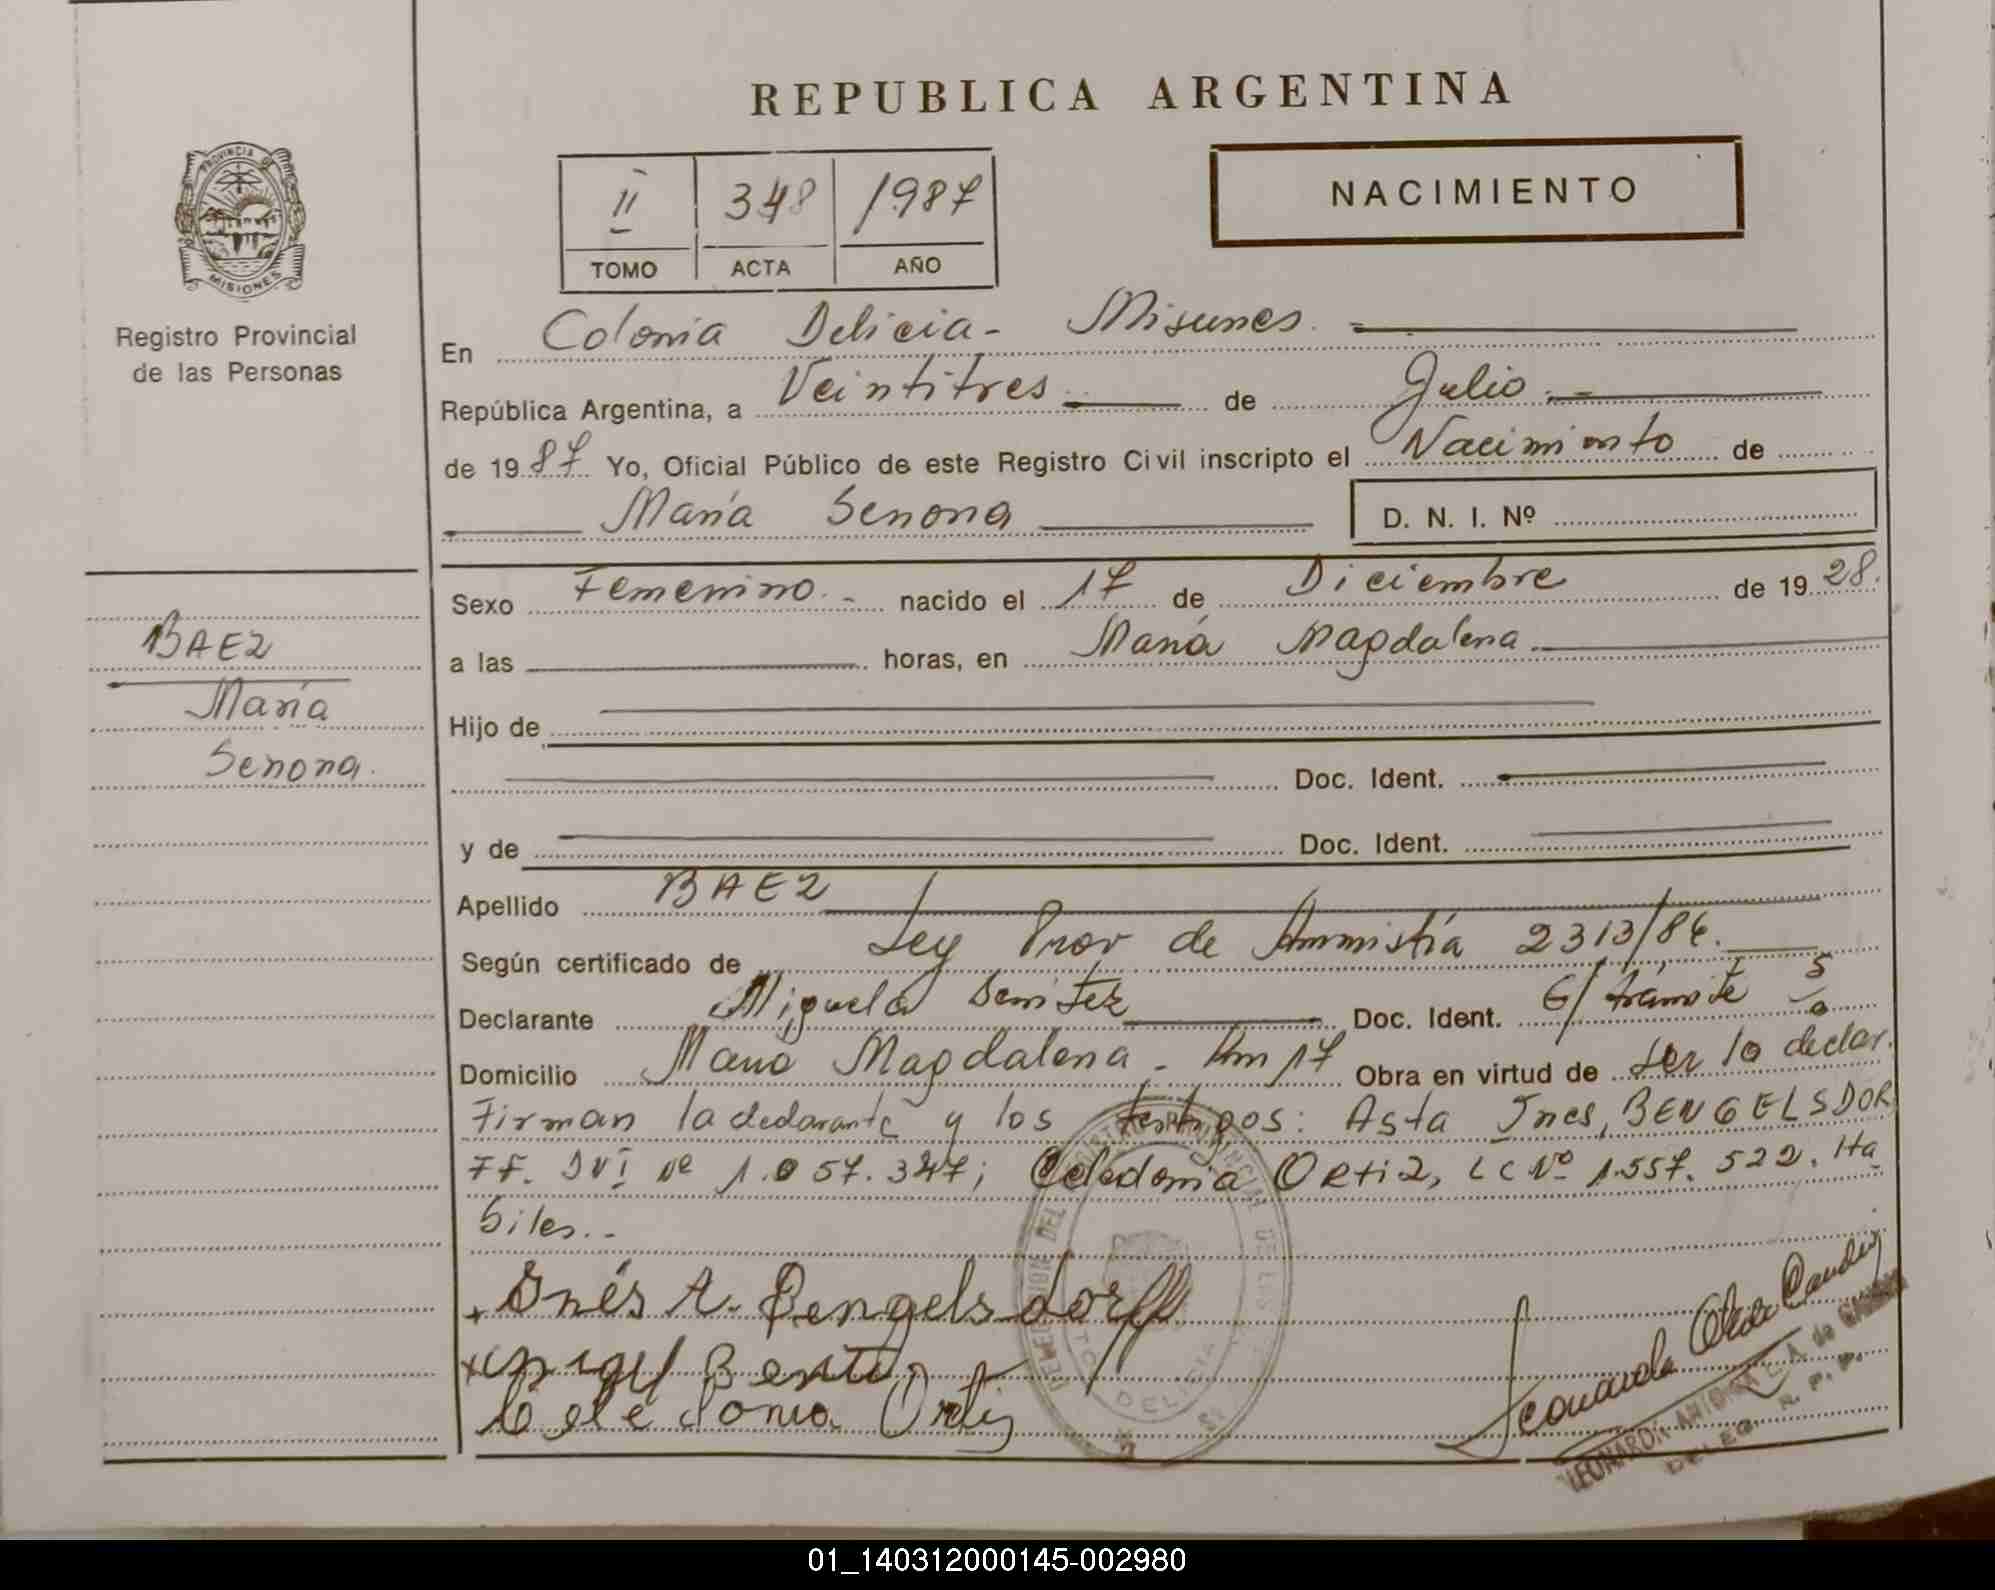 REPUBLICA ARGENTINA
PROVINCIA DE
MISIONES
Registro Provincial
de las Personas
II 348 1987
TOMO ACTA AÑO
NACIMIENTO
En Colonia Delicia - Misiones.
República Argentina, a Veintitres de Julio.-
de 1987 Yo, Oficial Público de este Registro Civil inscripto el Nacimiento de
María Senona D. N. I. Nº
Sexo Femenino.- nacido el 17 de Diciembre de 1928.
a las horas, en María Magdalena
Hijo de
Doc. Ident.
y de Doc. Ident.
BAEZ
María
Senona.
Apellido BAEZ
Según certificado de Ley Prov de Ammistía 2313/86.
Declarante Miguela Benitez Doc. Ident. E/trámite
Domicilio María Magdalena - Km 17 Obra en virtud de ser la declar.
Firman la declarante y los testigos: Asta Ines, BENGELSDOR
FF. DNI Nº 1.057.347; Celedonia Ortiz, LC Nº 1.557.522. Ha
biles.-
Inés A. Bengelsdorff
Benite
Celedonia Ortiz
DELICIA
01_140312000145-002980